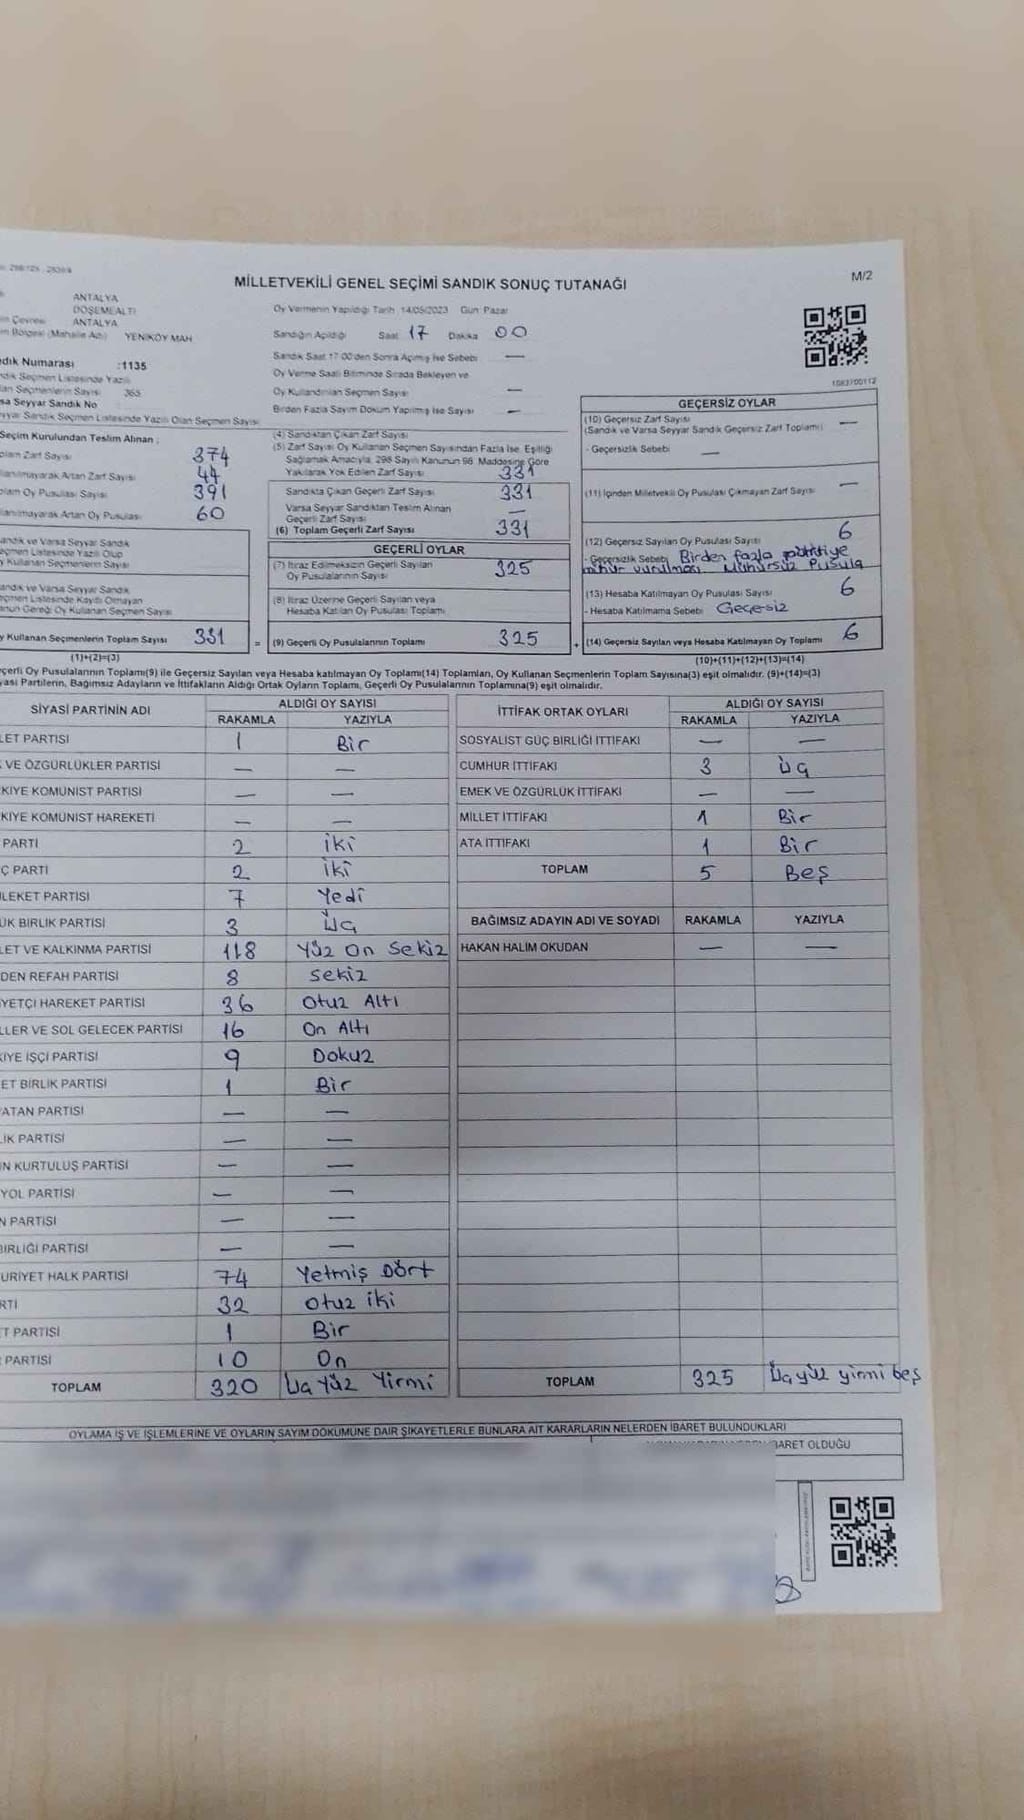 MİLLETVEKİLİ GENEL SEÇİMİ SANDIK SONUÇ TUTANAĞI
M/2
ANTALYA
DÖŞEMEALTI
ANTALYA
YENİKÖY MAH
Oy Vermenin Yapıldığı Tarih 14/05/2023 Gün: Pazar
Sandığın Açıldığı Saat 17 Dakika 00
Sandık Saat 17:00'den Sonra Açılmış İse Sebebi —
Oy Verme Saati Bitiminde Sırada Bekleyen ve
Oy Kullandırılan Seçmen Sayısı —
Birden Fazla Sayım Döküm Yapılmış İse Sayısı —
1083700112
dık Numarası :1135
Seçmen Listesinde Yazılı
Seçmenlerin Sayısı 365
sa Seyyar Sandık No
yyar Sandık Seçmen Listesinde Yazılı Olan Seçmen Sayısı
Seçim Kurulundan Teslim Alınan ;
plam Zarf Sayısı 374
lanılmayarak Artan Zarf Sayısı 44
plam Oy Pusulası Sayısı 391
lanılmayarak Artan Oy Pusulası 60
andık ve Varsa Seyyar Sandık
eçmen Listesinde Yazılı Olup
y Kullanan Seçmenlerin Sayısı
andık ve Varsa Seyyar Sandık
eçmen Listesinde Kayıtlı Olmayan
anun Gereği Oy Kullanan Seçmen Sayısı
y Kullanan Seçmenlerin Toplam Sayısı 331
(1)+(2)=(3)
(4) Sandıktan Çıkan Zarf Sayısı
(5) Zarf Sayısı Oy Kullanan Seçmen Sayısından Fazla İse, Eşitliği
Sağlamak Amacıyla, 298 Sayılı Kanunun 98. Maddesine Göre
Yakılarak Yok Edilen Zarf Sayısı 331
Sandıkta Çıkan Geçerli Zarf Sayısı 331
Varsa Seyyar Sandıktan Teslim Alınan
Geçerli Zarf Sayısı —
(6) Toplam Geçerli Zarf Sayısı 331
GEÇERLİ OYLAR
(7) İtiraz Edilmeksizin Geçerli Sayılan
Oy Pusulalarının Sayısı 325
(8) İtiraz Üzerine Geçerli Sayılan veya
Hesaba Katılan Oy Pusulası Toplamı
= (9) Geçerli Oy Pusulalarının Toplamı 325
GEÇERSİZ OYLAR
(10) Geçersiz Zarf Sayısı
(Sandık ve Varsa Seyyar Sandık Geçersiz Zarf Toplamı) —
- Geçersizlik Sebebi —
(11) İçinden Milletvekili Oy Pusulası Çıkmayan Zarf Sayısı —
(12) Geçersiz Sayılan Oy Pusulası Sayısı 6
- Geçersizlik Sebebi Birden fazla partiye
mühür vurulması. Mühürsüz Pusula
(13) Hesaba Katılmayan Oy Pusulası Sayısı 6
- Hesaba Katılmama Sebebi Geçersiz
+ (14) Geçersiz Sayılan veya Hesaba Katılmayan Oy Toplamı 6
(10)+(11)+(12)+(13)=(14)
çerli Oy Pusulalarının Toplamı(9) ile Geçersiz Sayılan veya Hesaba katılmayan Oy Toplamı(14) Toplamları, Oy Kullanan Seçmenlerin Toplam Sayısına(3) eşit olmalıdır. (9)+(14)=(3)
yasi Partilerin, Bağımsız Adayların ve İttifakların Aldığı Ortak Oyların Toplamı, Geçerli Oy Pusulalarının Toplamına(9) eşit olmalıdır.
SİYASİ PARTİNİN ADI ALDIĞI OY SAYISI
RAKAMLA YAZIYLA
LET PARTİSİ 1 Bir
VE ÖZGÜRLÜKLER PARTİSİ — —
KİYE KOMÜNİST PARTİSİ — —
KİYE KOMÜNİST HAREKETİ — —
PARTİ 2 iki
Ç PARTİ 2 iki
LEKET PARTİSİ 7 Yedi
ÜK BİRLİK PARTİSİ 3 Üç
LET VE KALKINMA PARTİSİ 118 Yüz On Sekiz
DEN REFAH PARTİSİ 8 Sekiz
YETÇİ HAREKET PARTİSİ 36 Otuz Altı
LLER VE SOL GELECEK PARTİSİ 16 On Altı
KİYE İŞÇİ PARTİSİ 9 Dokuz
ET BİRLİK PARTİSİ 1 Bir
ATAN PARTİSİ — —
LİK PARTİSİ — —
IN KURTULUŞ PARTİSİ — —
YOL PARTİSİ — —
N PARTİSİ — —
BİRLİĞİ PARTİSİ — —
URİYET HALK PARTİSİ 74 Yetmiş Dört
RTİ 32 Otuz iki
T PARTİSİ 1 Bir
PARTİSİ 10 On
TOPLAM 320 Üç Yüz Yirmi
İTTİFAK ORTAK OYLARI ALDIĞI OY SAYISI
RAKAMLA YAZIYLA
SOSYALİST GÜÇ BİRLİĞİ İTTİFAKI — —
CUMHUR İTTİFAKI 3 Üç
EMEK VE ÖZGÜRLÜK İTTİFAKI — —
MİLLET İTTİFAKI 1 Bir
ATA İTTİFAKI 1 Bir
TOPLAM 5 Beş
BAĞIMSIZ ADAYIN ADI VE SOYADI RAKAMLA YAZIYLA
HAKAN HALİM OKUDAN — —
TOPLAM 325 Üç yüz yirmi beş
OYLAMA İŞ VE İŞLEMLERİNE VE OYLARIN SAYIM DÖKÜMÜNE DAİR ŞİKAYETLERLE BUNLARA AİT KARARLARIN NELERDEN İBARET BULUNDUKLARI
BARET OLDUĞU